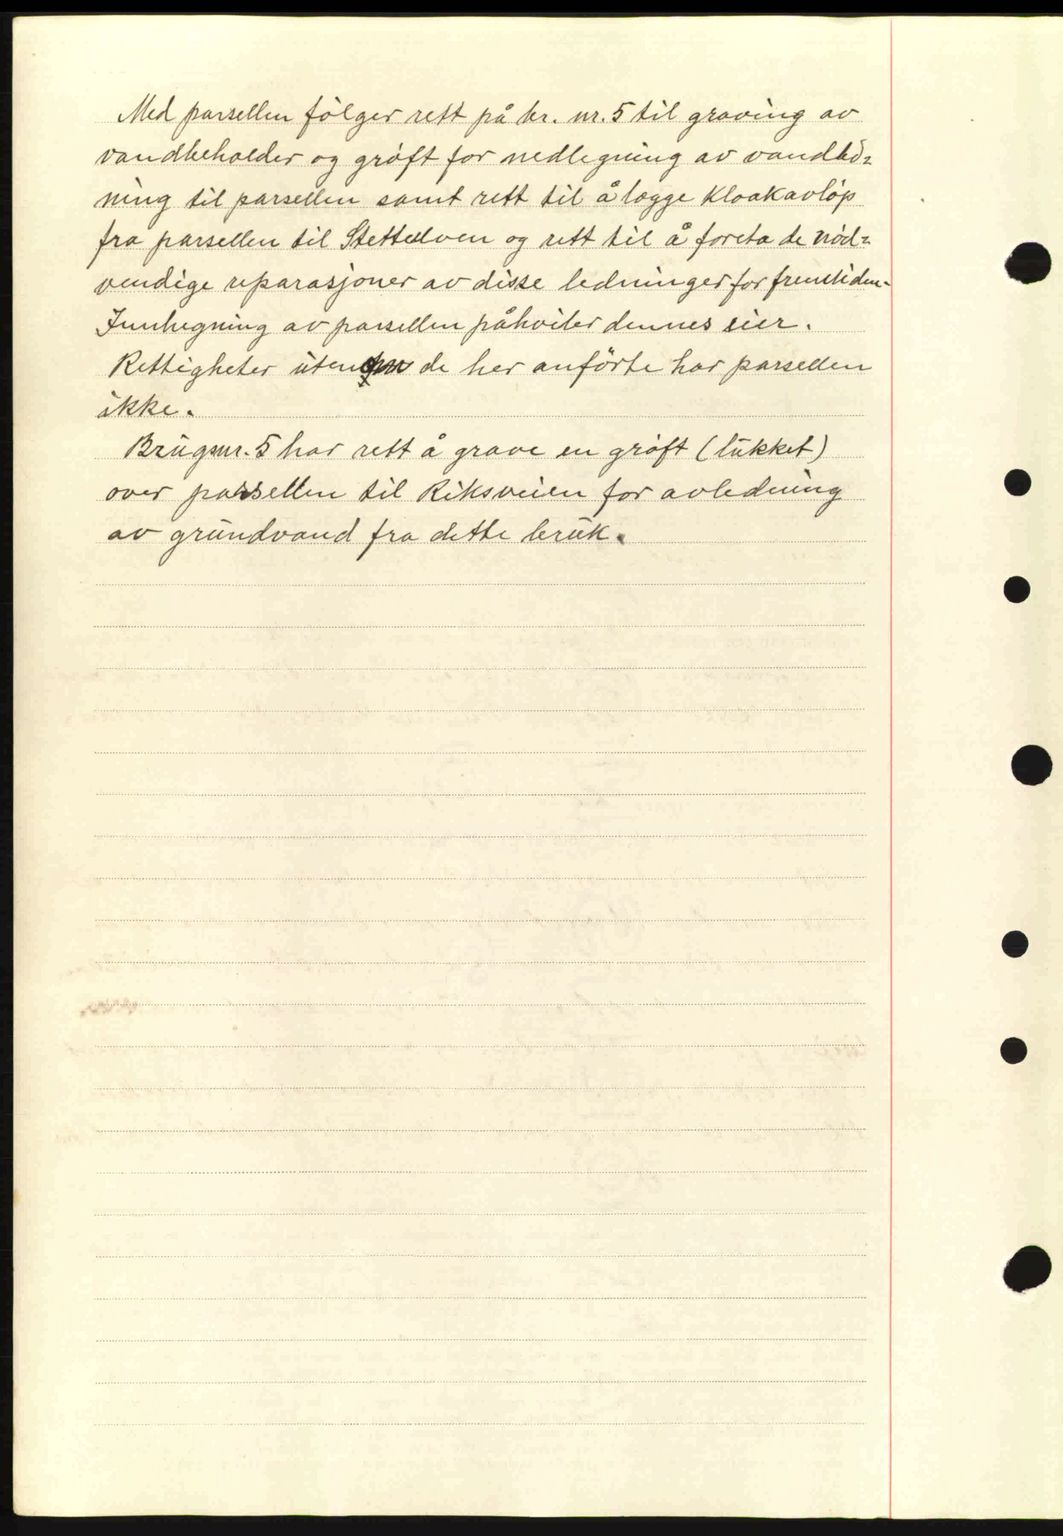 Med parsellen följer rett på br. nr. 5 til graving av
vandbeholder og gröft for nedlegning av vandled=
ning til parsellen samt rett til å lægge kloakavlöp
fra parsellen til Stettelven og rett til å foreta de nöd=
vendige reparasjoner av disse ledninger for fremtiden.
Innhegning av parsellen påhviler dennes eier.
Rettigheter uten de her anförte har parsellen
ikke.
Brugsnr. 5 har rett å grave en gröft (lukket)
over parsellen til Riksveien for avledning
av grundvand fra dette bruk.